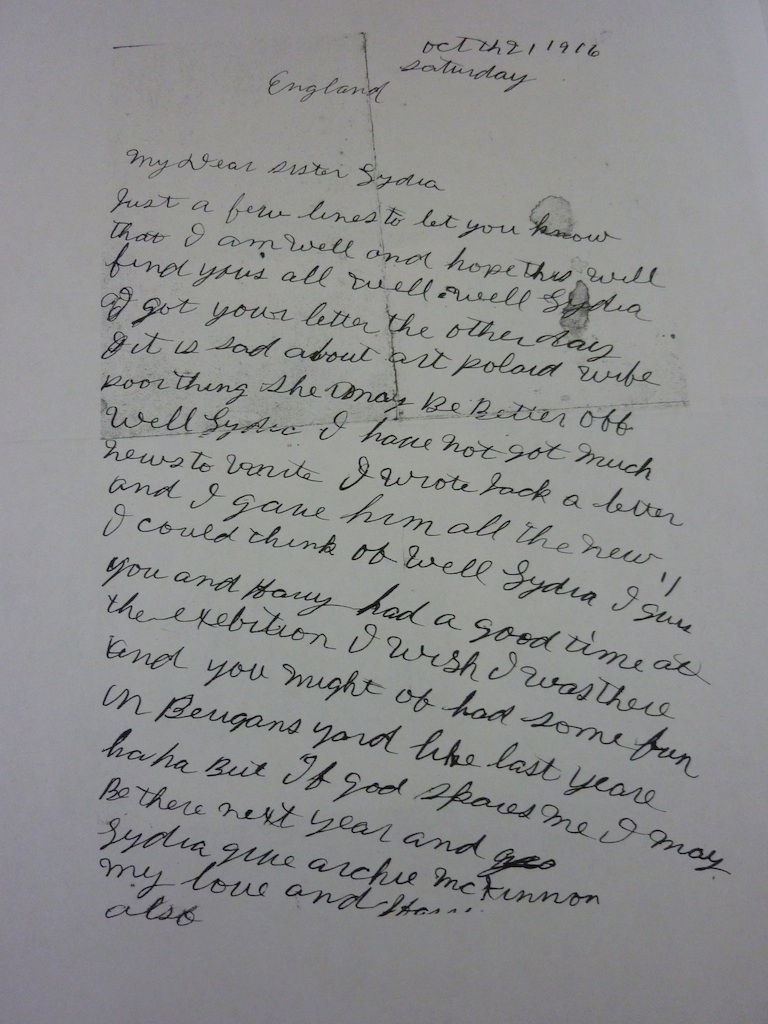 oct th 21 1916
saturday
England
My Dear sister Lydia
Just a few lines to let you know
that I am well and hope this will
find you's all well. well Lydia
I got your letter the other day
it is sad about art polard wife
poor thing she may Be Better off
Well Lydia I have not got much
news to write I wrote Jack a letter
and I gave him all the new"
I could think of well Lydia I gues
you and Harry had a good time at
the exebition I wish I was there
and you might of had some fun
in Beugans yard like last yeare
ha ha But If god spaces me I may
Be there next year and
Lydia give archie McKinnon
my love and
also